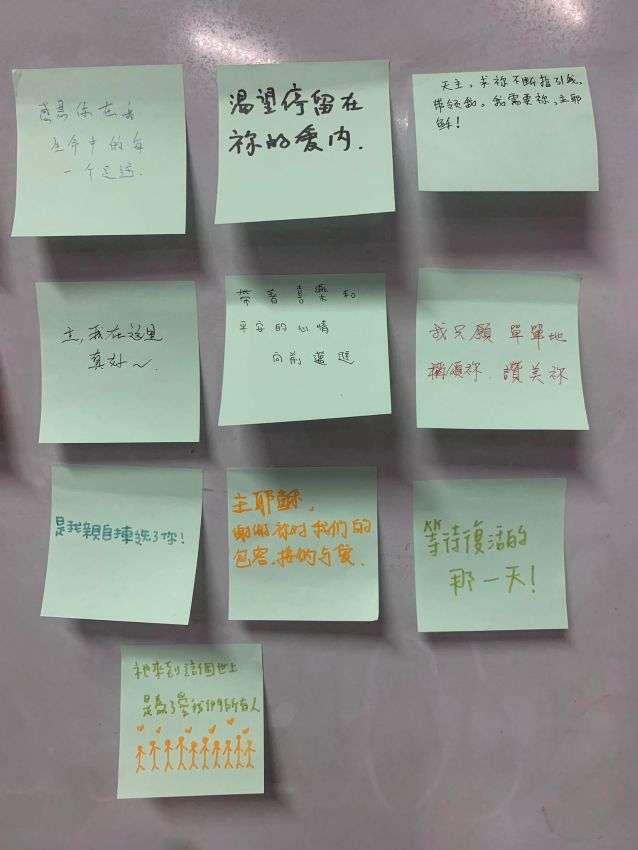 你在我
生命中的每
一个足迹.
渴望停留在
祢的爱内.
天主，求祢不断指引我,
带领我。我需要祢,主耶
稣!
主,我在这里
真好~
帶著喜樂和
平安的心情
向前邁進
我只願 單單地
稱頌祢. 讚美祢
是我親自揀选了你!
主耶稣,
谢谢祢对我们的
包容,接纳与爱.
等待復活的
那一天!
祂來到這個世上
是為了愛我們所有人